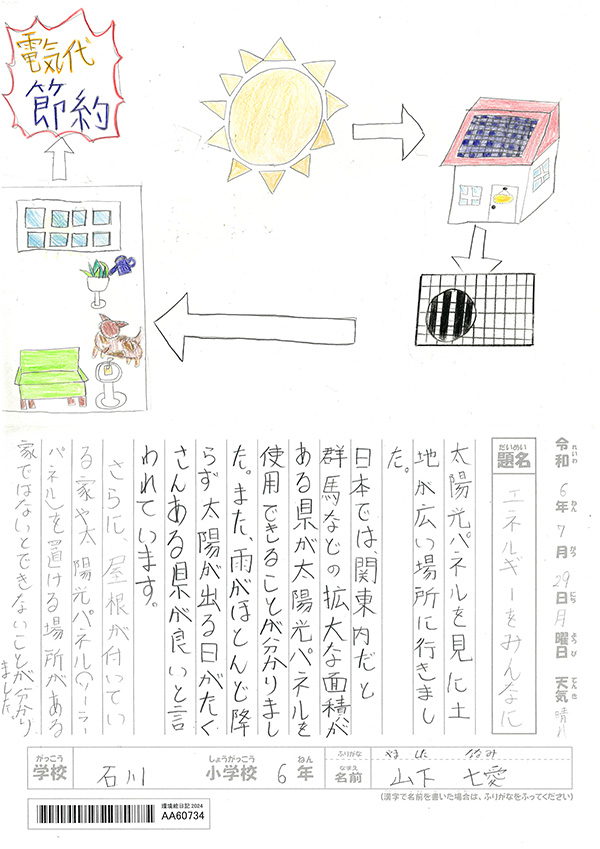 電気代
節約
令和6年7月29日月曜日 天気 晴れ
れいわ ねん がつ にち ようび てんき
だいめい
題名
エネルギーをみんなに
太陽光パネルを見に土
地が広い場所に行きまし
た。
日本では、関東内だと
群馬などの拡大な面積が
ある県が太陽光パネルを
使用できることが分かりまし
た。また、雨がほとんど降
らず太陽が出る日がたく
さんある県が良いと言
われています。
さらに、屋根が付いてい
る家や太陽光パネル(ソーラー
パネル)を置ける場所がある
家ではないとできないことが分かり
ました。
がっこう しょうがっこう ねん ふりがな やました ななみ
学校 石川 小学校 6年 なまえ 名前 山下 七愛
(漢字で名前を書いた場合は、ふりがなをふってください)
環境絵日記2024
AA60734